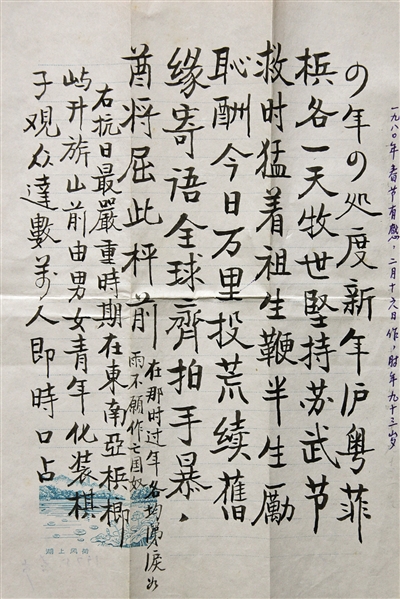 一九八〇年春节有感，二月十六日作，时年九十三岁
の年の处度新年沪粤菲
梹各一天牧世堅持苏武节
救时猛着祖生鞭半生勵
恥酬今日万里投荒续舊
缘寄语全球齊拍手暴，
酋将屈此枰前
在那时过年各均涕淚如
雨不願作亡国奴
右抗日最嚴重時期在東南亞梹榔
屿升旗山前由男女青年化装棋
子观众達數萬人即時口占